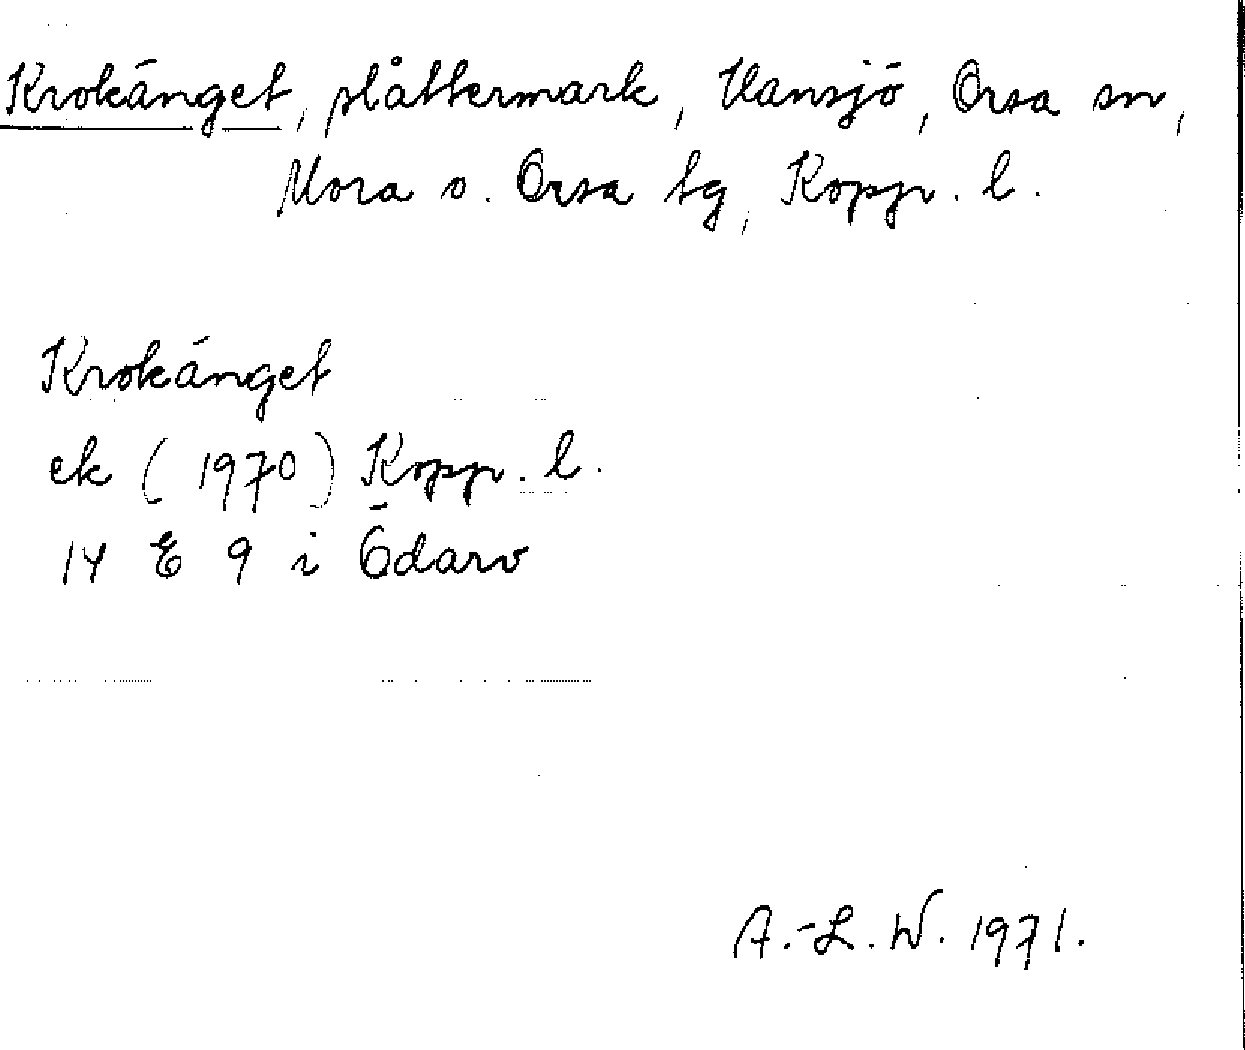 Krokänget, slåttermark, Vansjö, Orsa sn,
Mora o. Orsa tg, Kopp. l.
Krokänget
ek (1970) Kopp. l.
14 E 9 i Ödarv
A.-L. W. 1971.